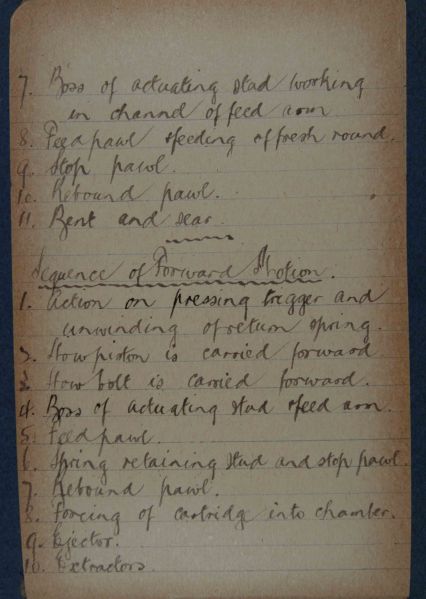 7. Boss of actuating stud working
in channel of feed arm
8. Feed pawl & feeding of fresh round.
9. Stop pawl.
10. Rebound pawl.
11. Bent and sear.
Sequence of Forward Motion.
1. Action on pressing trigger and
unwinding of return spring.
2. How piston is carried forward
3. How bolt is carried forward.
4. Boss of actuating stud & feed arm.
5. Feed pawl.
6. Spring retaining stud and stop pawl.
7. Rebound pawl.
8. Forcing of cartridge into chamber.
9. Ejector.
10. Extractors.